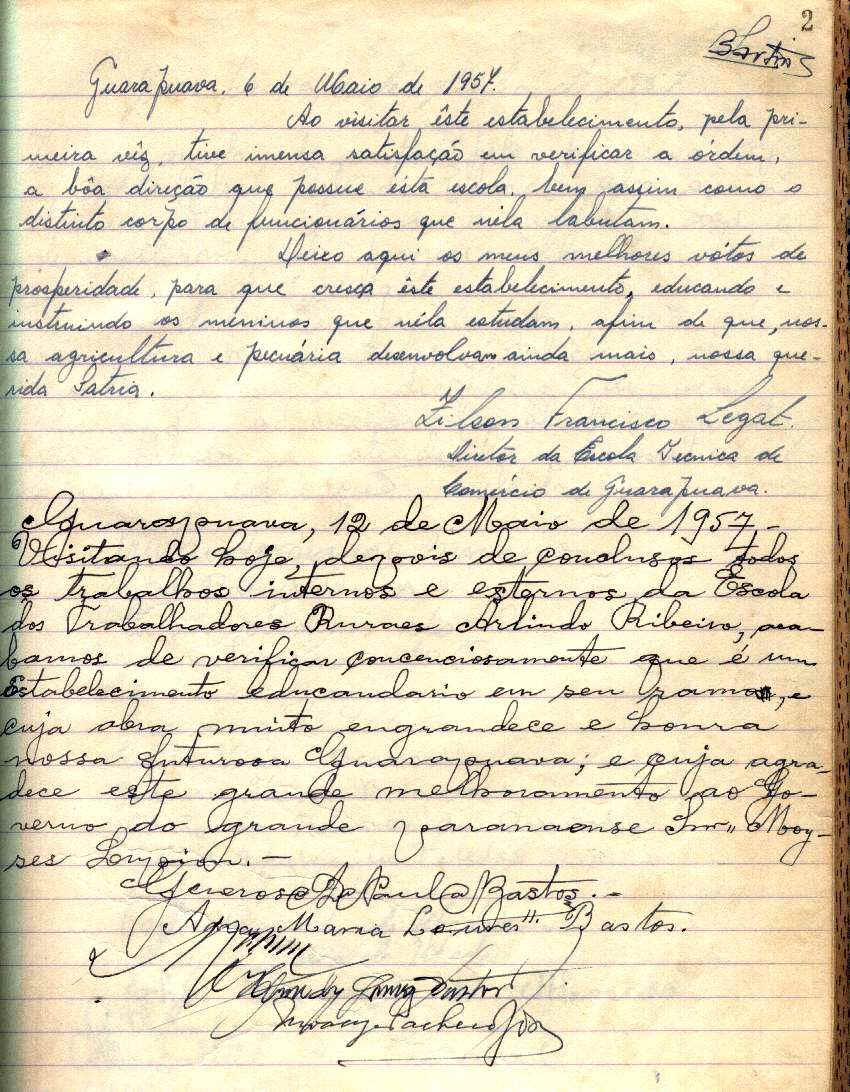 2
Guarapuava. 6 de Maio de 1957.
Ao visitar êste estabelecimento, pela pri-
meira vêz, tive imensa satisfação em verificar a órdem,
a bôa direção que possue esta escola, bem assim como o
distinto corpo de funcionários que nela labutam.
Deixo aqui os meus melhores vótos de
prosperidade, para que cresça êste estabelecimento, educando e
instruindo os meninos que nela estudam, afim de que, nos-
sa agricultura e pecuária desenvolvam ainda mais, nossa que-
rida Patria.
Zilson Francisco Legat.
Diretor da Escola Tecnica de
Comércio de Guarapuava.
Guarapuava, 12 de Maio de 1957-
Visitando hoje, depois de conclusos todos
os trabalhos internos e esternos da Escola
dos Trabalhadores Ruraes Arlindo Ribeiro, aca-
bamos de verificar concenciosamente que é um
Estabelecimento educandario em seu ramo, e
cuja obra muito engrandece e honra
nossa futurosa Guarapuava; e cuja agra-
dece este grande melhoramento ao Go-
verno do grande paranaense Snr" Moy-
ses Lupion.-
Generoso De Paula Bastos.-
Maria Bastos.
Pacheco